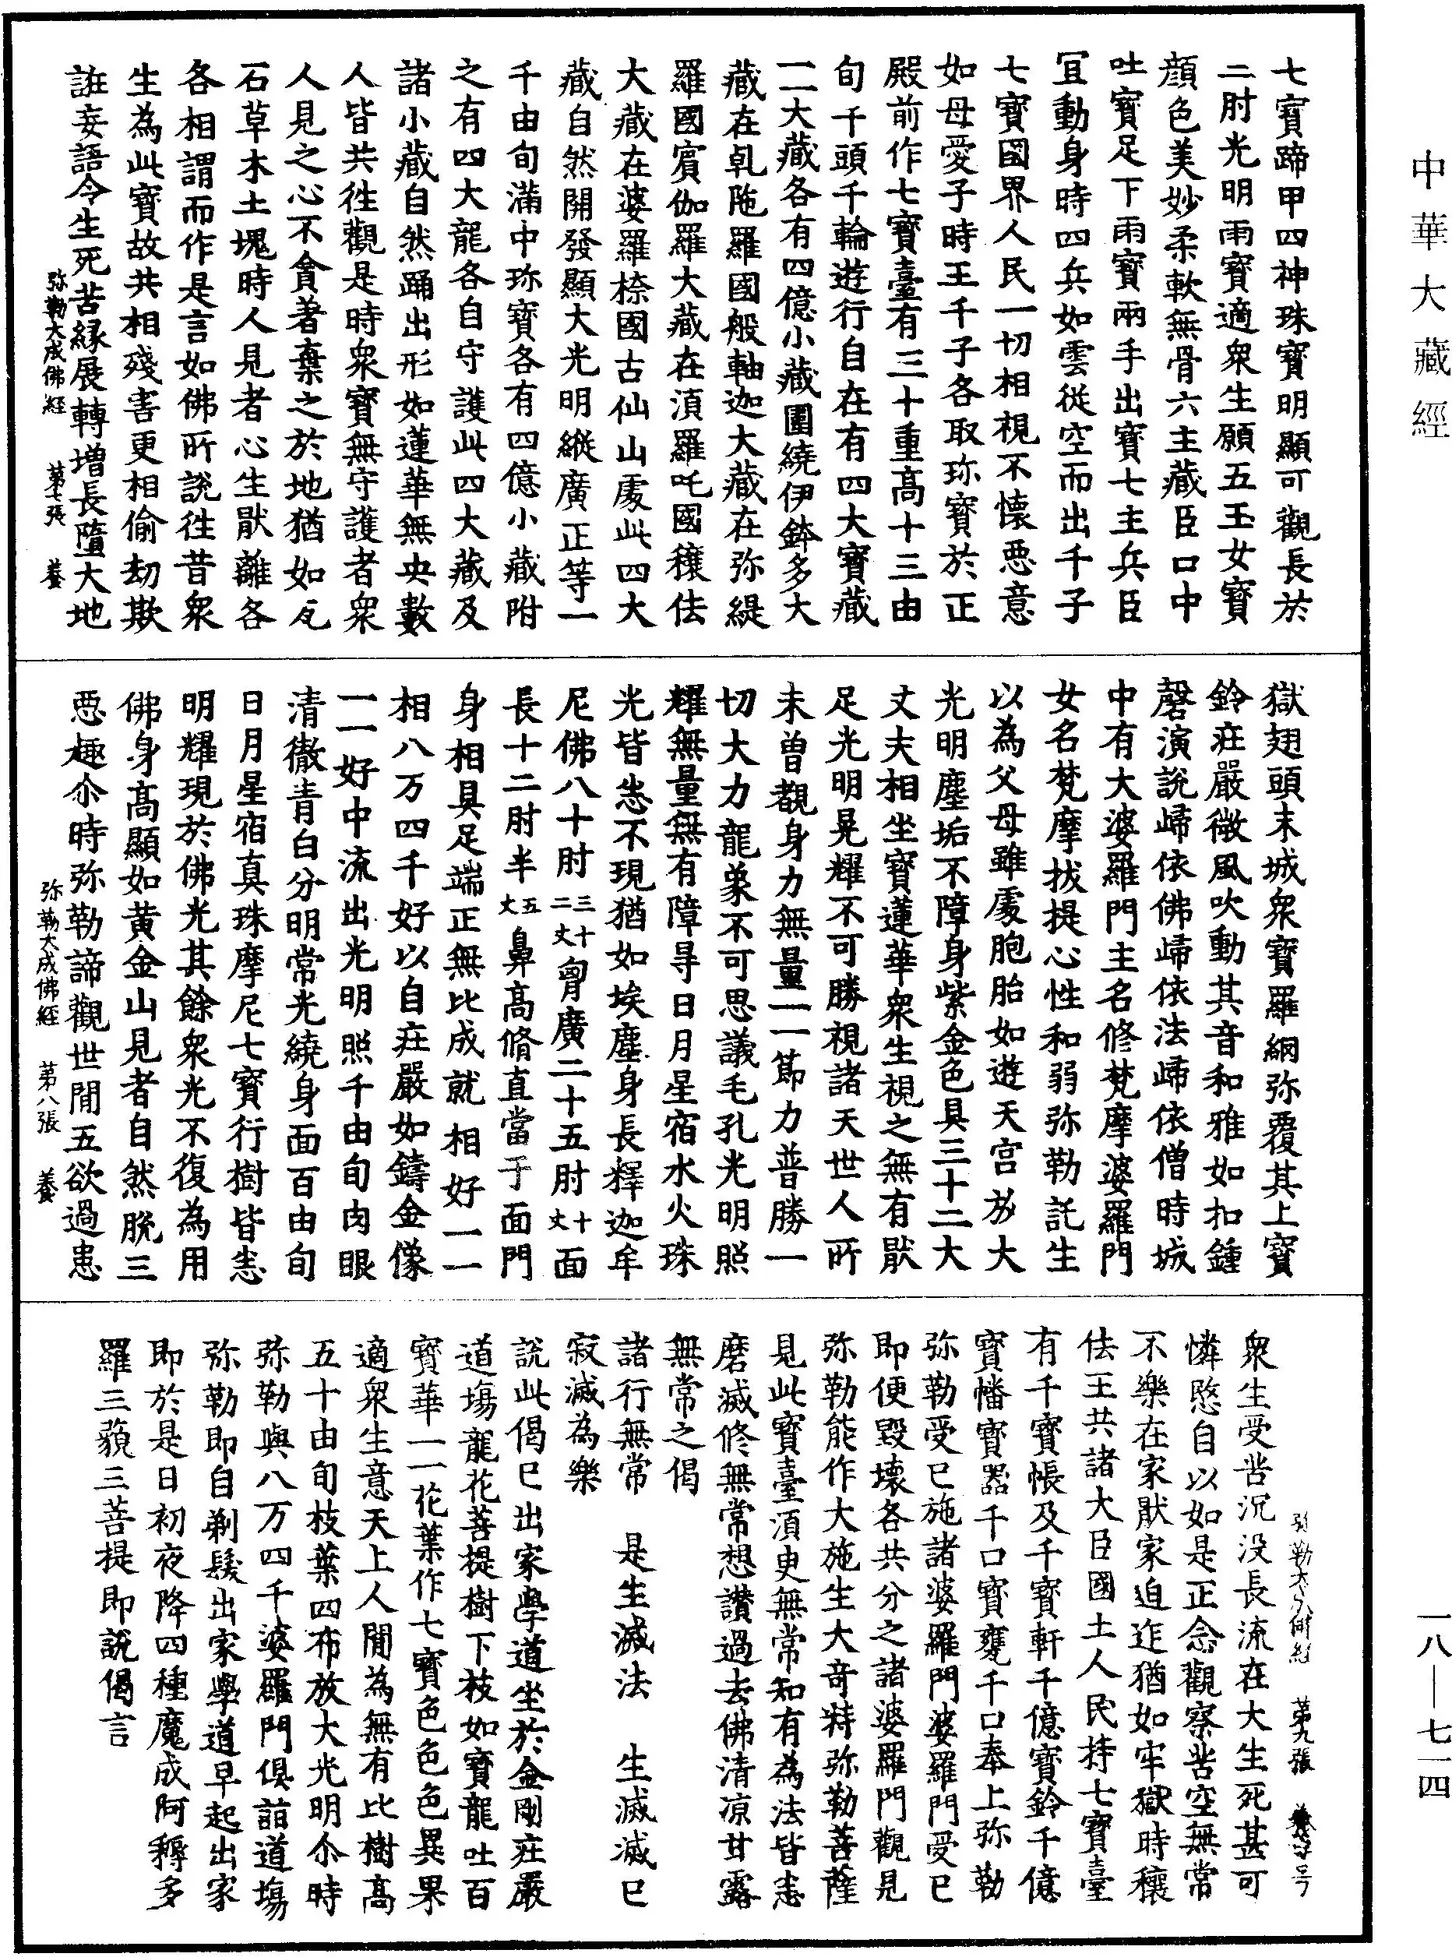 中華大藏經
一八—七一四
七寶蹄甲四神珠寶明顯可觀長於
二肘光明雨寶適衆生願五玉女寶
顔色美妙柔軟無骨六主藏臣口中
吐寶足下雨寶兩手出寶七主兵臣
宜動身時四兵如雲従空而出千子
七寶國界人民一切相視不懷惡意
如母愛子時王千子各取珎寶於正
殿前作七寶臺有三十重高十三由
旬千頭千輪遊行自在有四大寶藏
一一大藏各有四億小藏圍繞伊鉢多大
藏在乹陁羅國般軸迦大藏在弥緹
羅國賓伽羅大藏在湏羅吒國穰佉
大藏在婆羅㮈國古仙山䖏此四大
藏自然開發顯大光明縱廣正等一
千由旬滿中珎寶各有四億小藏附
之有四大龍各自守護此四大藏及
諸小藏自然踊出形如蓮華無央數
人皆共徃觀是時衆寶無守護者衆
人見之心不貪著棄之於地猶如瓦
石草木土塊時人見者心生猒離各
各相謂而作是言如佛所說徃昔衆
生為此寶故共相殘害更相偷劫欺
誑妄語令生死苦縁展轉增長墮大地
弥勒大成佛經　第七張　養
獄翅頭末城衆寶羅網弥覆其上寶
鈴莊嚴微風吹動其音和雅如扣鍾
磬演說歸依佛歸依法歸依僧時城
中有大婆羅門主名修梵摩婆羅門
女名梵摩拔提心性和弱弥勒託生
以為父母雖䖏胞胎如遊天宮放大
光明塵垢不障身紫金色具三十二大
丈夫相坐寶蓮華衆生視之無有猒
足光明晃耀不可勝視諸天世人所
未曾覩身力無量一一節力普勝一
切大力龍象不可思議毛孔光明照
耀無量無有障㝵日月星宿水火珠
光皆悉不現猶如埃塵身長釋迦牟
尼佛八十肘三十二丈胷廣二十五肘十丈面
長十二肘半五丈鼻高脩直當于面門
身相具足端正無比成就相好一一
相八万四千好以自莊嚴如鑄金像
一一好中流出光明照千由旬肉眼
清徹青白分明常光繞身面百由旬
日月星宿真珠摩尼七寶行樹皆悉
明耀現於佛光其餘衆光不復為用
佛身高顯如黄金山見者自然脫三
惡趣尒時弥勒諦觀世閒五欲過患
弥勒大成佛經　第八張　養
弥勒大　第九張
衆生受苦沉没長流在大生死甚可
憐愍自以如是正念觀察苦空無常
不樂在家猒家迫迮猶如牢獄時穰
佉王共諸大臣國土人民持七寶臺
有千寶帳及千寶軒千億寶鈴千億
寶幡寶器千口寶甕千口奉上弥勒
弥勒受已施諸婆羅門婆羅門受已
即便毀壞各共分之諸婆羅門觀見
弥勒能作大施生大奇特弥勒菩薩
見此寶臺湏臾無常知有為法皆悉
磨滅修無常想讃過去佛清凉甘露
無常之偈
諸行無常　是生滅法　生滅滅已
寂滅為樂
說此偈已出家學道坐於金剛莊嚴
道塲龍花菩提樹下枝如寶龍吐百
寶華一一花葉作七寶色色色異果
適衆生意天上人閒為無有比樹高
五十由旬枝葉四布放大光明尒時
弥勒與八万四千婆羅門俱詣道塲
弥勒即自剃髮出家學道早起出家
即於是日初夜降四種魔成阿耨多
羅三藐三菩提即說偈言